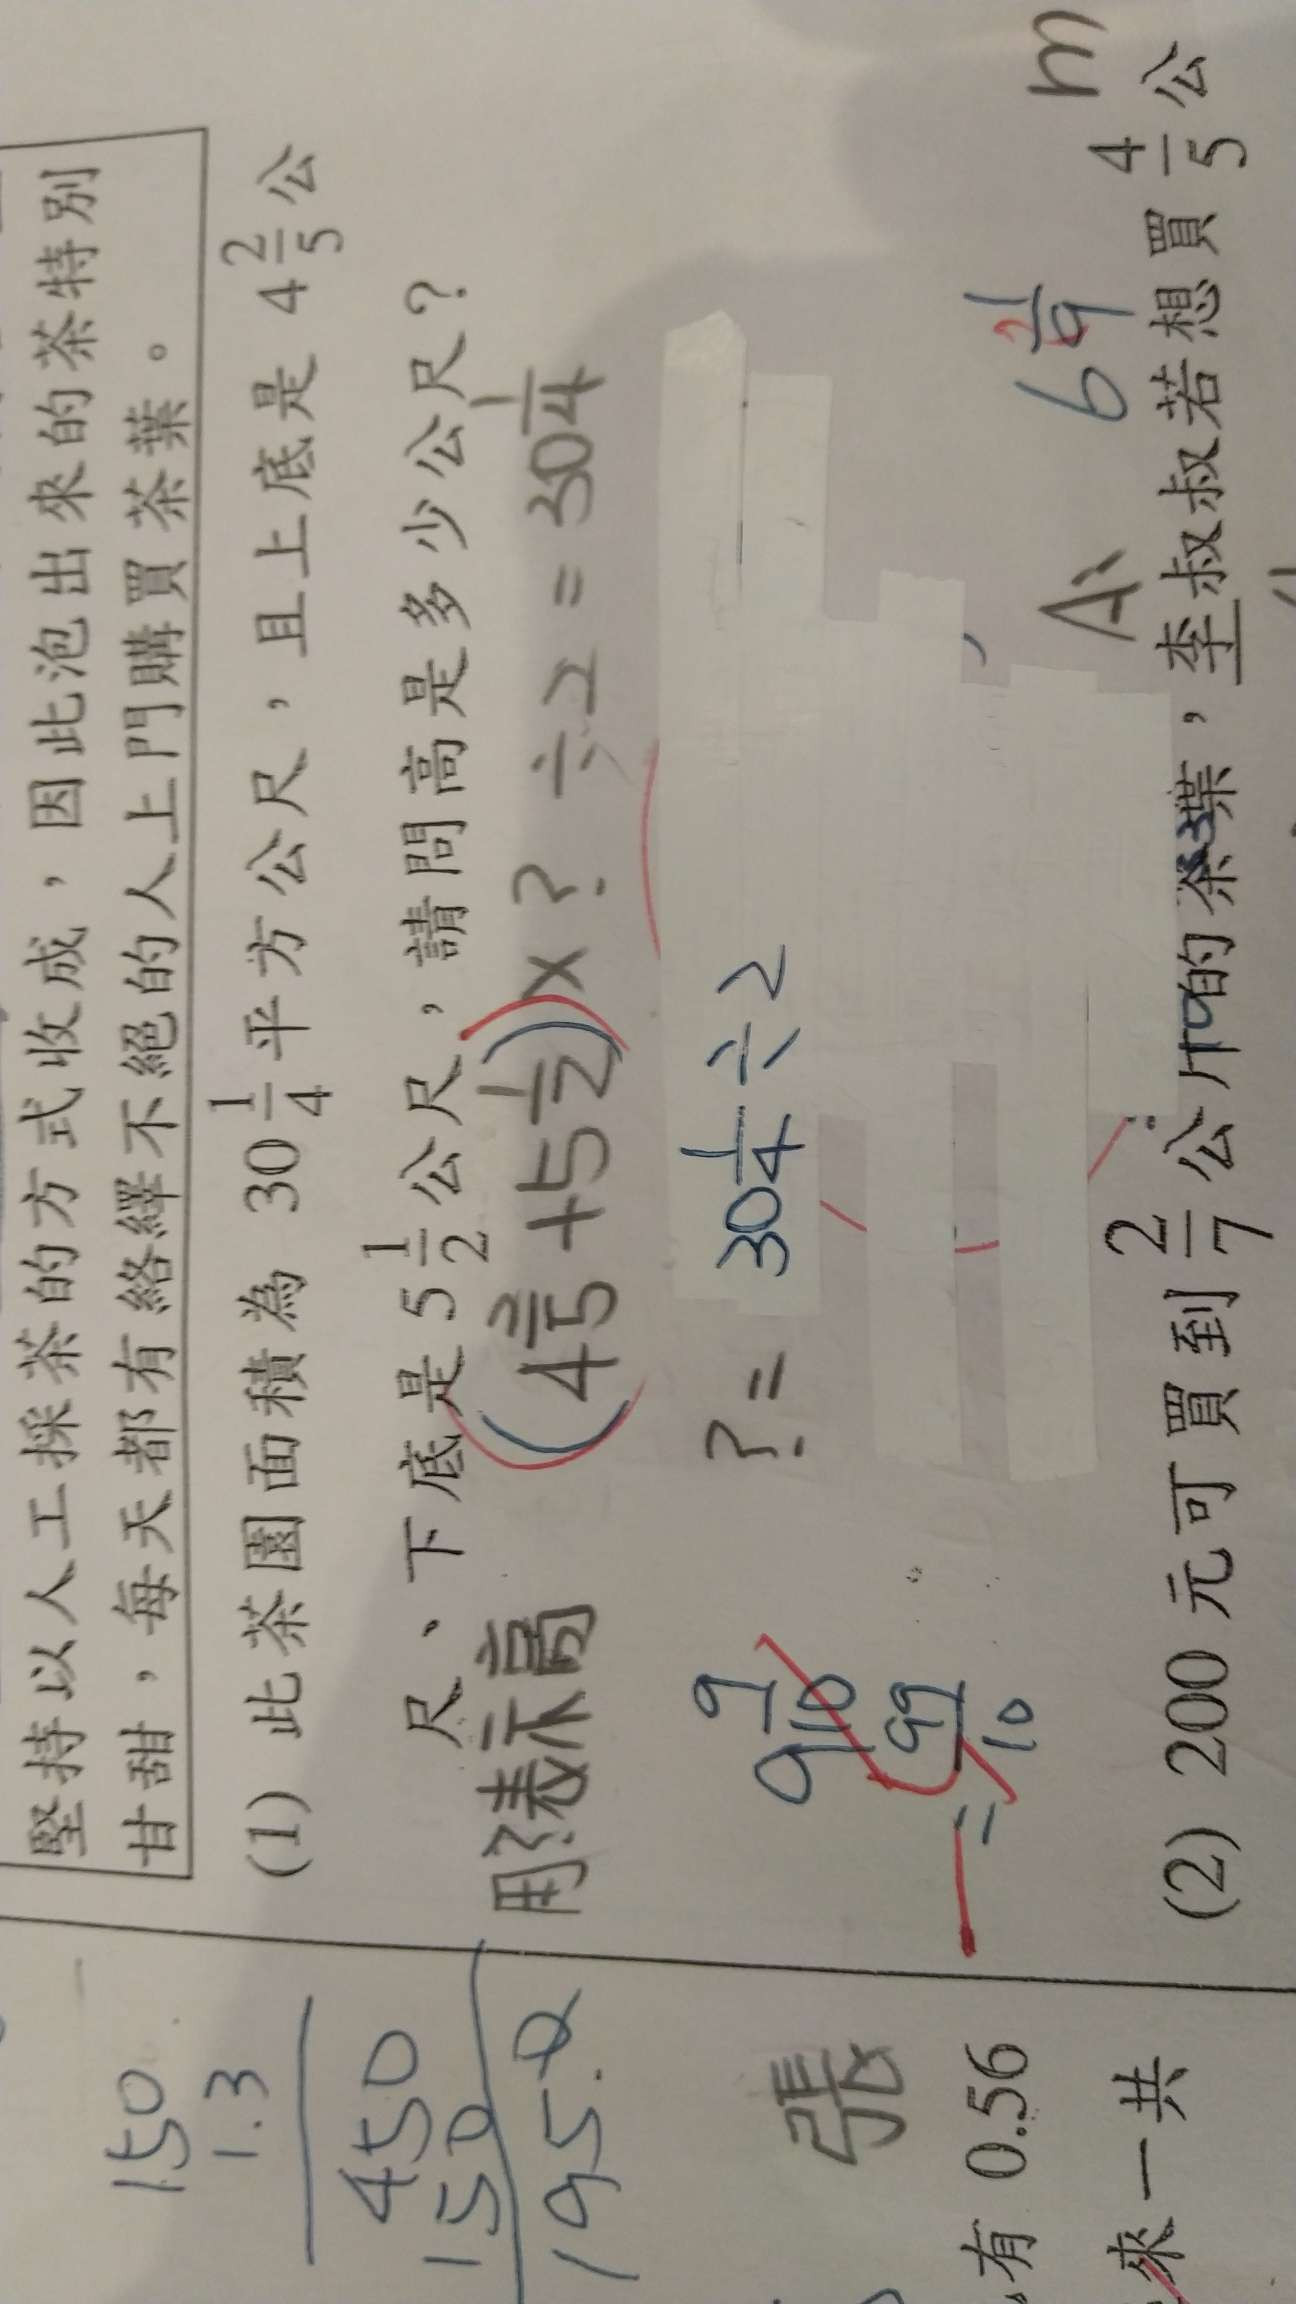 堅持以人工採茶的方式收成，因此泡出來的茶特別
甘甜，每天都有絡繹不絕的人上門購買茶葉。
(1) 此茶園面積為 30 1/4 平方公尺，且上底是 4 2/5 公
尺、下底是 5 1/2 公尺，請問高是多少公尺？
用?表示高 (4 2/5 + 5 1/2) × ? ÷ 2 = 30 1/4
? = 30 1/4 ÷ 2
9 9/10
= 99/10
A: 6 1/9 m
(2) 200 元可買到 2/7 公斤的茶葉，李叔叔若想買 4/5 公
150
1.3
450
150
195.0
張
有 0.56
來一共